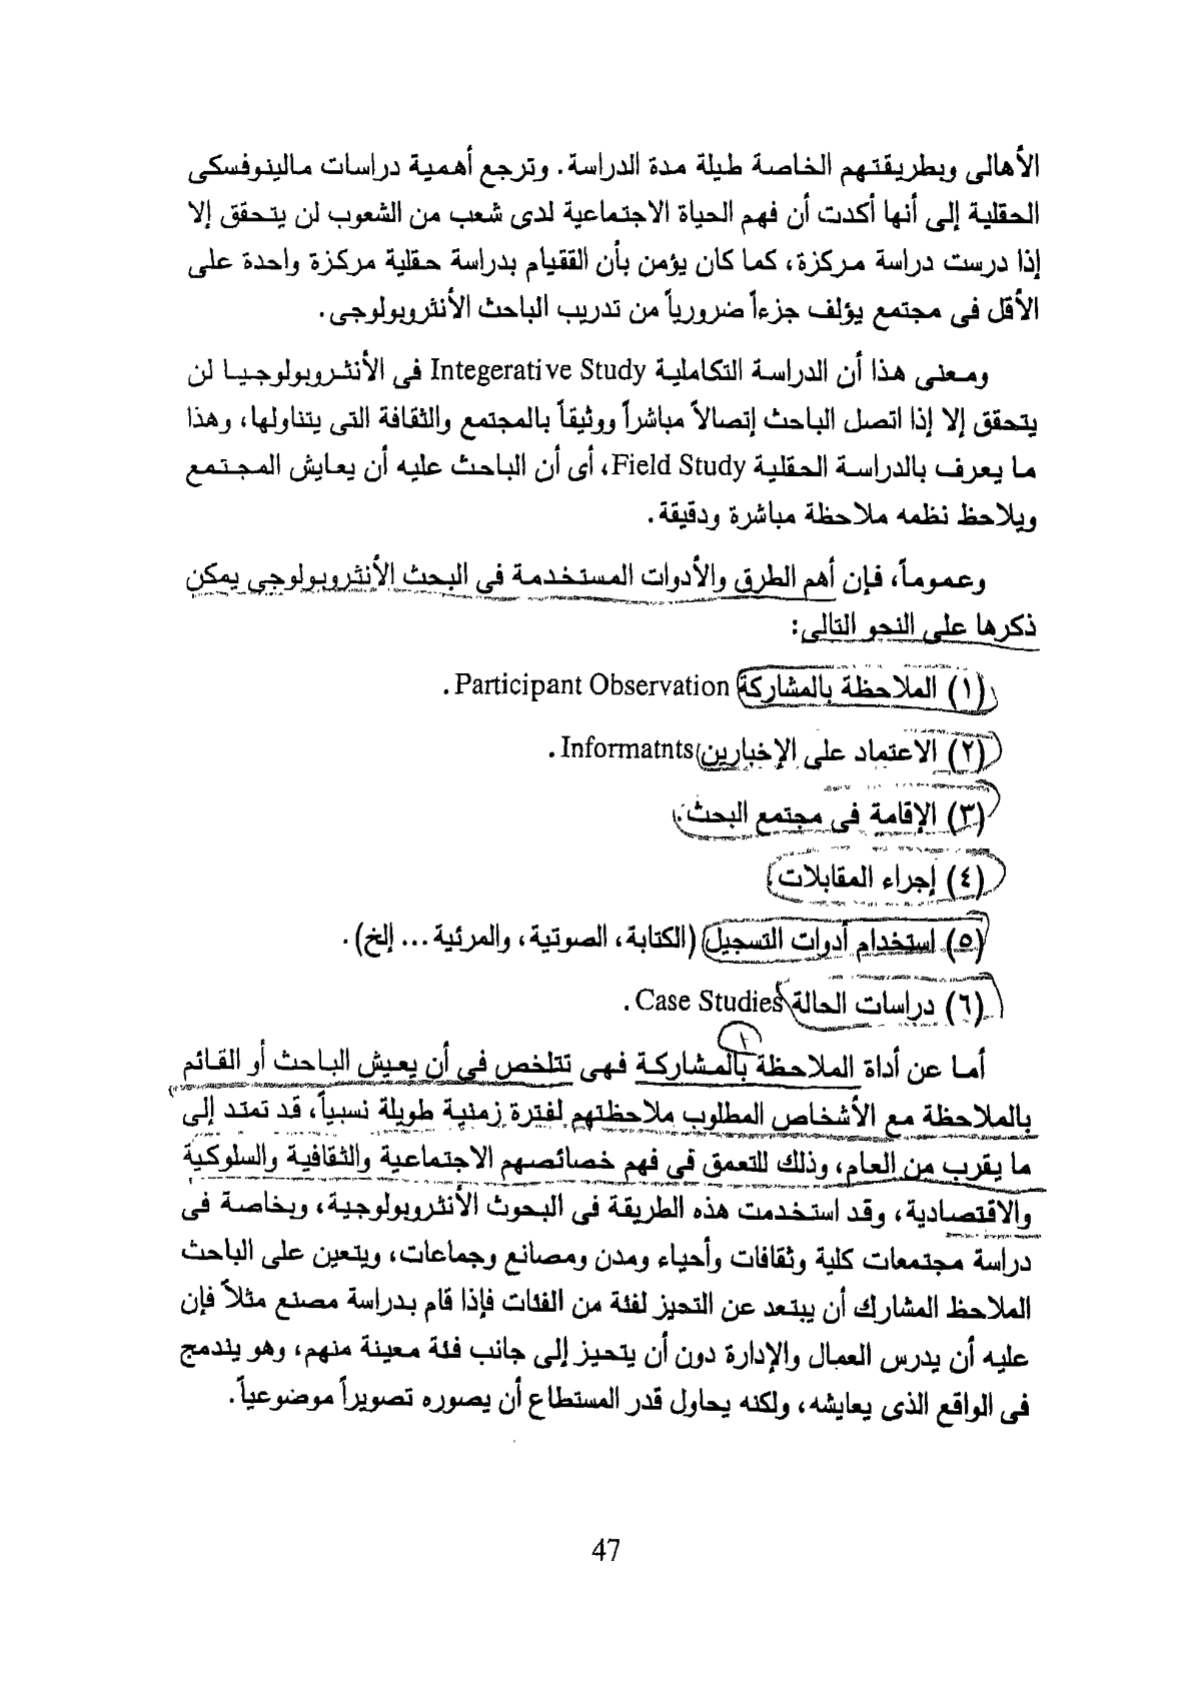 الأهالى وبطريقتهم الخاصة طيلة مدة الدراسة. وترجع أهمية دراسات مالينوفسكى
الحقلية إلى أنها أكدت أن فهم الحياة الاجتماعية لدى شعب من الشعوب لن يتحقق إلا
إذا درست دراسة مركزة، كما كان يؤمن بأن الققيام بدراسة حقلية مركزة واحدة على
الأقل فى مجتمع يؤلف جزءاً ضرورياً من تدريب الباحث الأنثروبولوجى.
ومعنى هذا أن الدراسة التكاملية Integerative Study فى الأنثروبولوجيا لن
يتحقق إلا إذا اتصل الباحث إتصالاً مباشراً ووثيقاً بالمجتمع والثقافة التى يتناولها، وهذا
ما يعرف بالدراسة الحقلية Field Study، أى أن الباحث عليه أن يعايش المجتمع
ويلاحظ نظمه ملاحظة مباشرة ودقيقة.
وعموماً، فإن أهم الطرق والأدوات المستخدمة فى البحث الأنثروبولوجى يمكن
ذكرها على النحو التالى:
(١) الملاحظة بالمشاركة Participant Observation.
(٢) الاعتماد على الإخبارين Informatnts.
(٣) الإقامة فى مجتمع البحث.
(٤) إجراء المقابلات.
(٥) استخدام أدوات التسجيل (الكتابة، الصوتية، والمرئية ... إلخ).
(٦) دراسات الحالة Case Studies.
١
أما عن أداة الملاحظة بالمشاركة فهى تتلخص فى أن يعيش الباحث أو القائم
بالملاحظة مع الأشخاص المطلوب ملاحظتهم لفترة زمنية طويلة نسبياً، قد تمتد إلى
ما يقرب من العام، وذلك للتعمق فى فهم خصائصهم الاجتماعية والثقافية والسلوكية
والاقتصادية، وقد استخدمت هذه الطريقة فى البحوث الأنثروبولوجية، وبخاصة فى
دراسة مجتمعات كلية وثقافات وأحياء ومدن ومصانع وجماعات، ويتعين على الباحث
الملاحظ المشارك أن يبتعد عن التحيز لفئة من الفئات فإذا قام بدراسة مصنع مثلاً فإن
عليه أن يدرس العمال والإدارة دون أن يتحيز إلى جانب فئة معينة منهم، وهو يندمج
فى الواقع الذى يعايشه، ولكنه يحاول قدر المستطاع أن يصوره تصويراً موضوعياً.
47